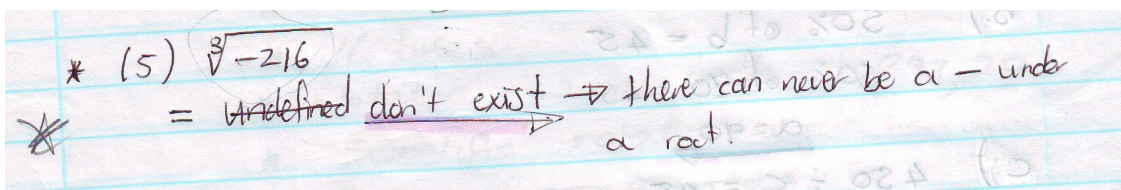 * (5) ∛-216
= undefined don't exist → there can never be a - under
a root!